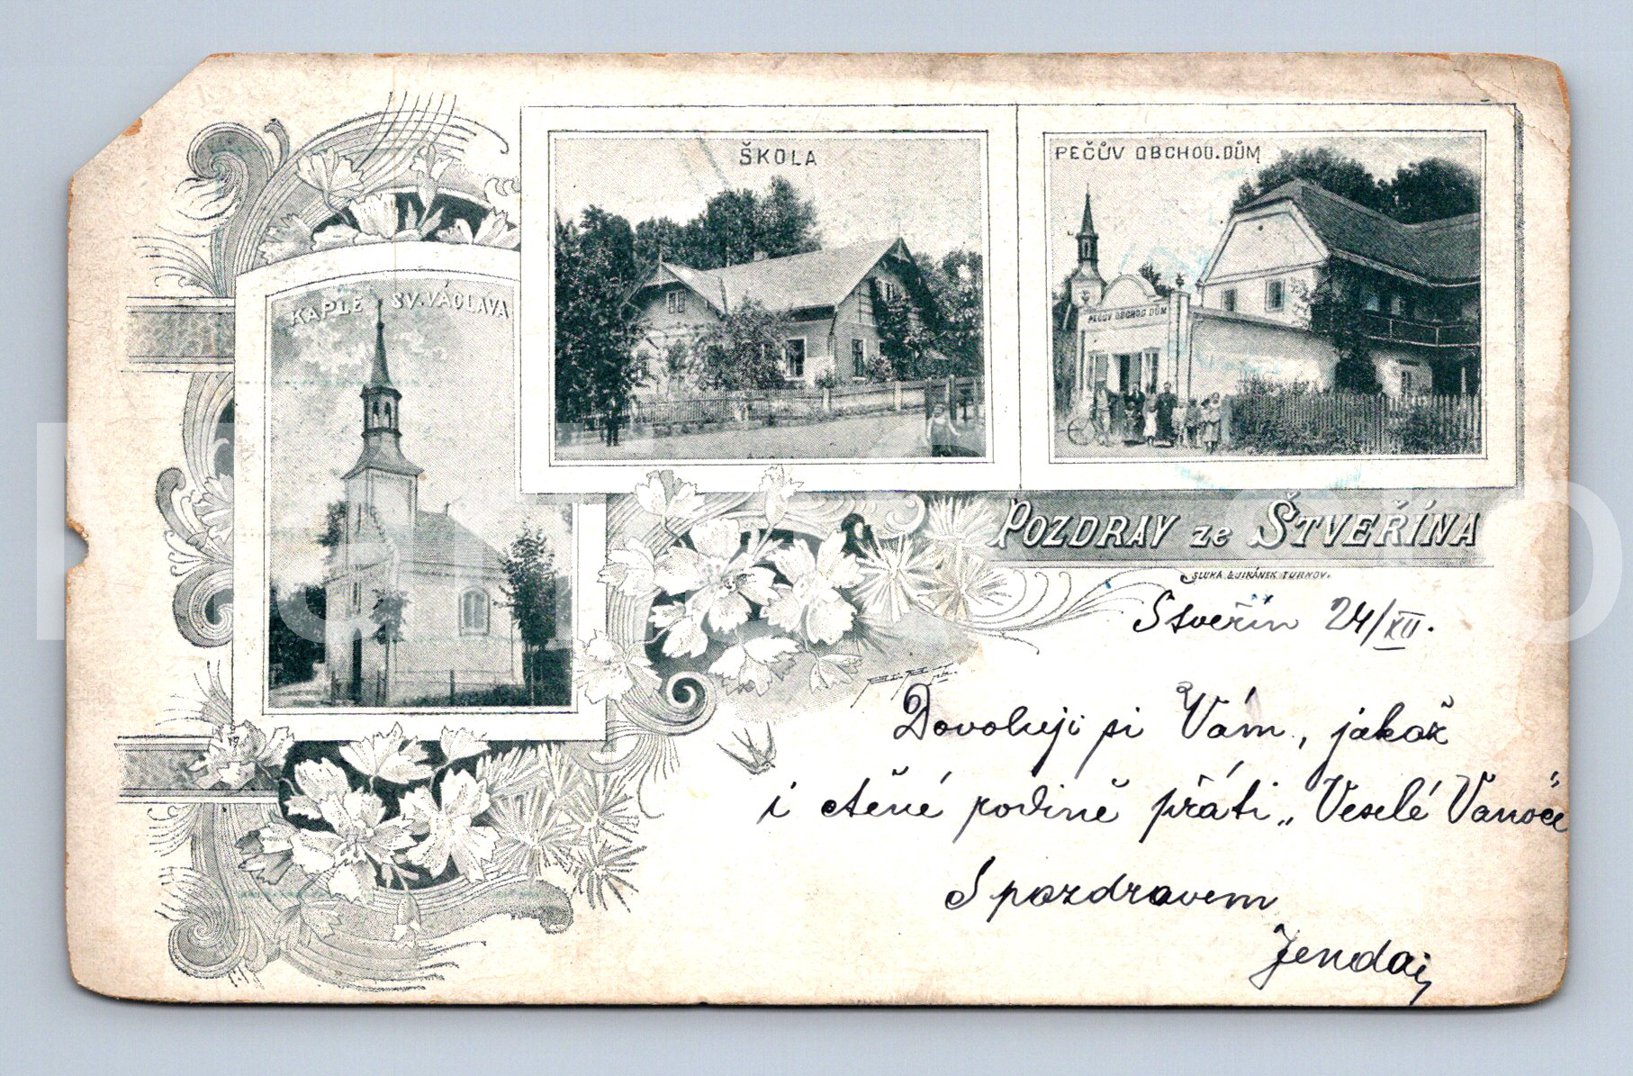 KAPLE SV. VÁCLAVA
ŠKOLA
PEČŮV OBCHOD. DŮM
PEČŮV OBCHOD DŮM
POZDRAV ze ŠTVEŘÍNA
SLUKA & JIRÁNEK TURNOV.
Štveřín 24/XII.
Dovoluji si Vám, jakož
i ctěné rodině přáti „Veselé Vánoce
S pozdravem